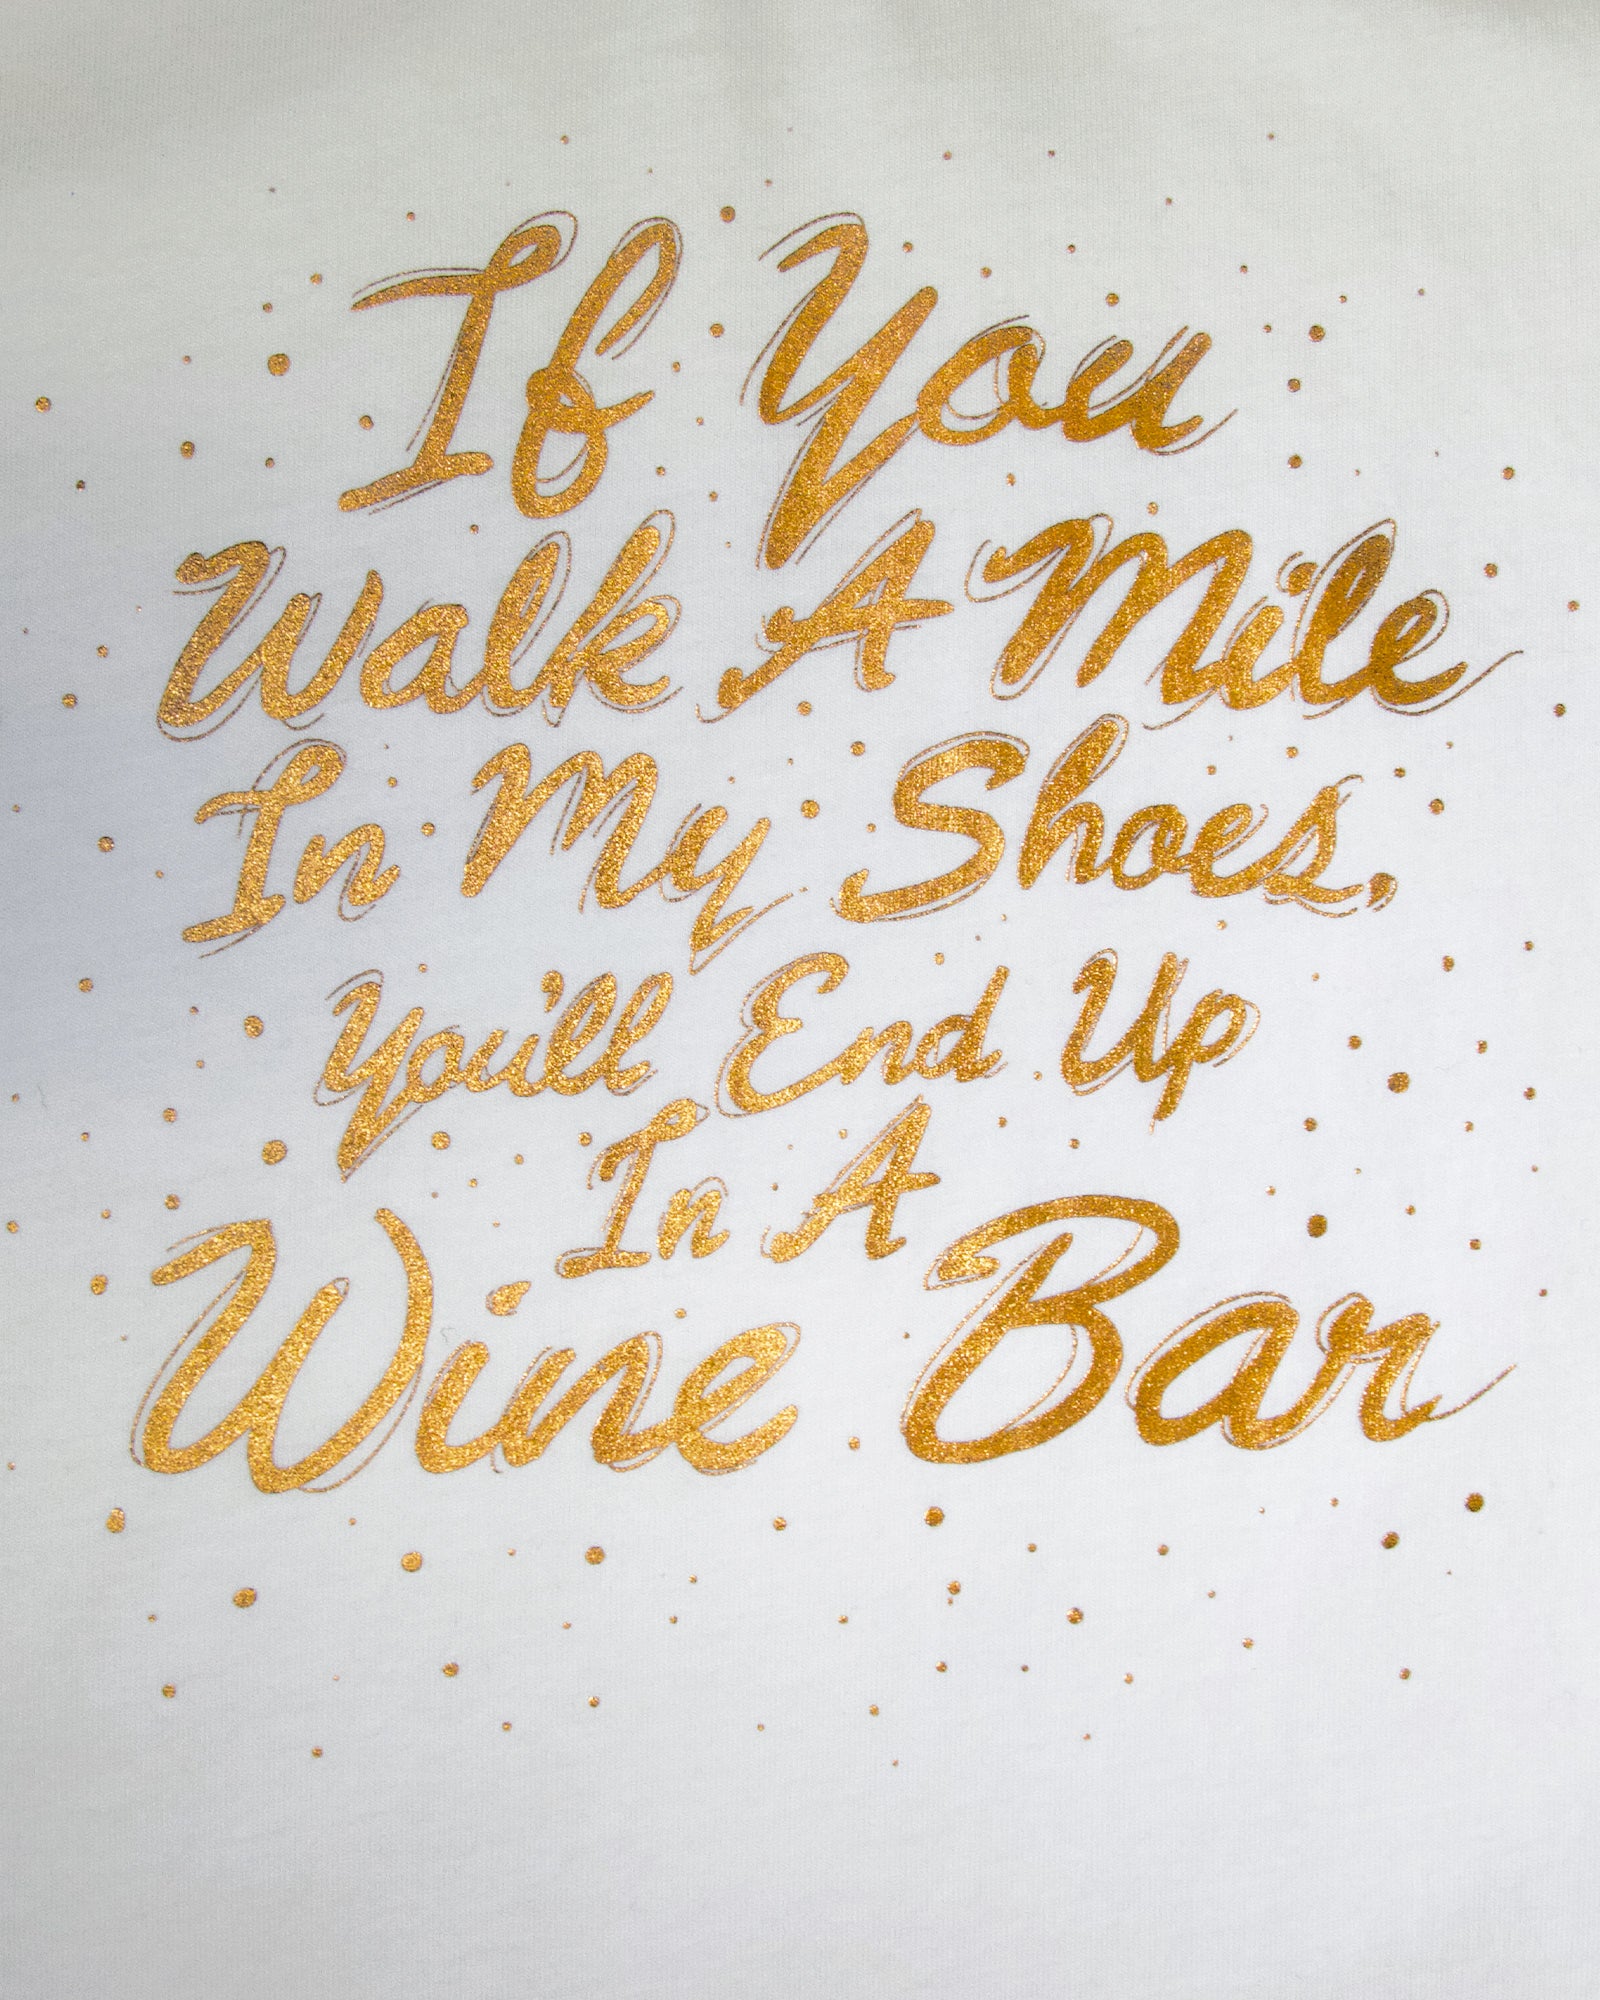 If You
Walk A Mile
In My Shoes,
You'll End Up
In A
Wine Bar